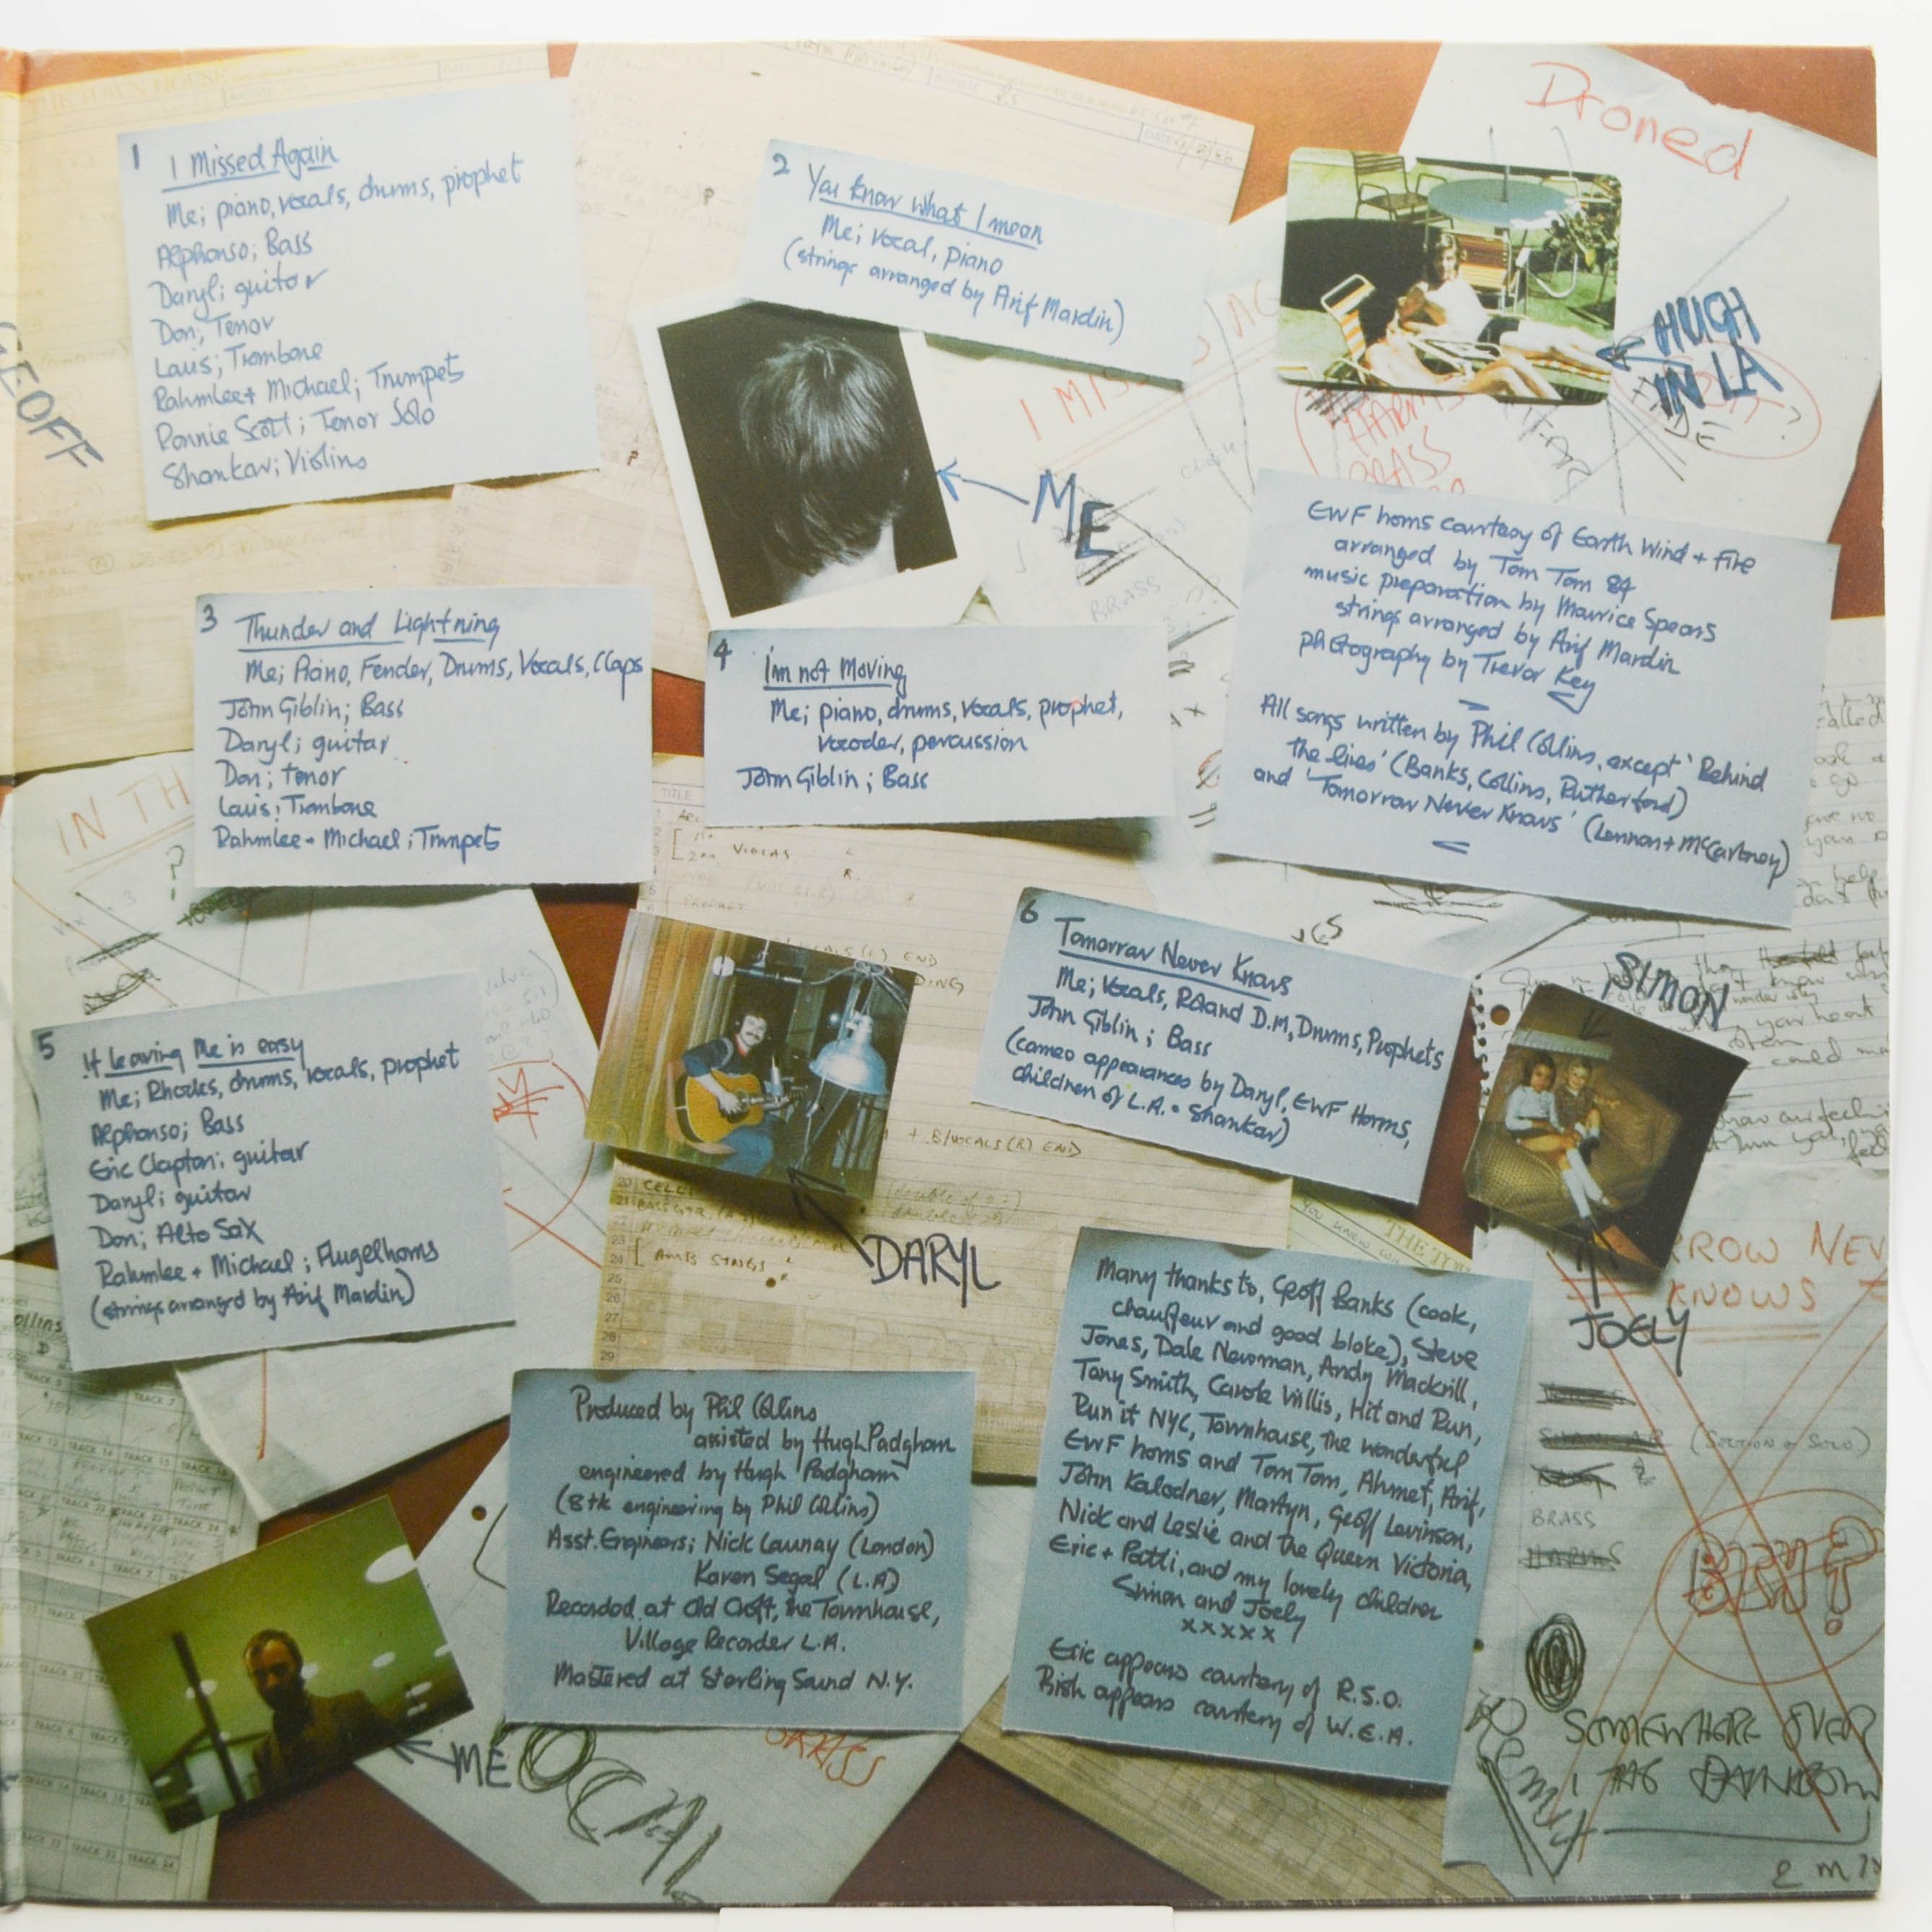 GEOFF
1 I Missed Again
Me; piano, vocals, drums, prophet
Alphonso; Bass
Daryl; guitar
Don; Tenor
Louis; Trombone
Rahmlee + Michael; Trumpets
Ronnie Scott; Tenor Solo
Shankar; Violins
2 You know what I mean
Me; vocal, piano
(strings arranged by Arif Mardin)
Droned
HUGH
IN LA
ME
EWF horns courtesy of Earth Wind + Fire
arranged by Tom Tom 84
music preparation by Maurice Spears
strings arranged by Arif Mardin
photography by Trevor Key
All songs written by Phil Collins, except 'Behind
the lines' (Banks, Collins, Rutherford)
and 'Tomorrow Never Knows' (Lennon + McCartney)
3 Thunder and Lightning
Me; Piano, Fender, Drums, Vocals, Claps
John Giblin; Bass
Daryl; guitar
Don; tenor
Louis; Trombone
Rahmlee + Michael; Trumpets
4 I'm not Moving
Me; piano, drums, vocals, prophet,
vocoder, percussion
John Giblin; Bass
IN TH
BRASS
TITLE
VIOLAS
5 If leaving Me is easy
Me; Rhodes, drums, vocals, prophet
Alphonso; Bass
Eric Clapton; guitar
Daryl; guitar
Don; Alto Sax
Rahmlee + Michael; Flugelhorns
(strings arranged by Arif Mardin)
6 Tomorrow Never Knows
Me; Vocals, Roland D.M, Drums, Prophets
John Giblin; Bass
(cameo appearances by Daryl, EWF Horns,
children of L.A. + Shankar)
SIMON
JOELY
DARYL
+ B/VOCALS (R) END
AMB STRGS
RROW NEV
KNOWS
Produced by Phil Collins
assisted by Hugh Padgham
engineered by Hugh Padgham
(8tk engineering by Phil Collins)
Asst. Engineers; Nick Launay (London)
Karen Segal (L.A)
Recorded at Old Croft, the Townhouse,
Village Recorder L.A.
Mastered at Sterling Sound N.Y.
Many thanks to, Geoff Banks (cook,
chauffeur and good bloke), Steve
Jones, Dale Newman, Andy Mackrill,
Tony Smith, Carole Willis, Hit and Run,
Run it NYC, Townhouse, the wonderful
EWF horns and Tom Tom, Ahmet, Arif,
John Kalodner, Martyn, Geoff Levinson,
Nick and Leslie and the Queen Victoria,
Eric + Patti, and my lovely children
Simon and Joely
xxxxx
Eric appears courtesy of R.S.O.
Rish appears courtesy of W.E.A.
ME
BRASS
SOMEWHERE OVER